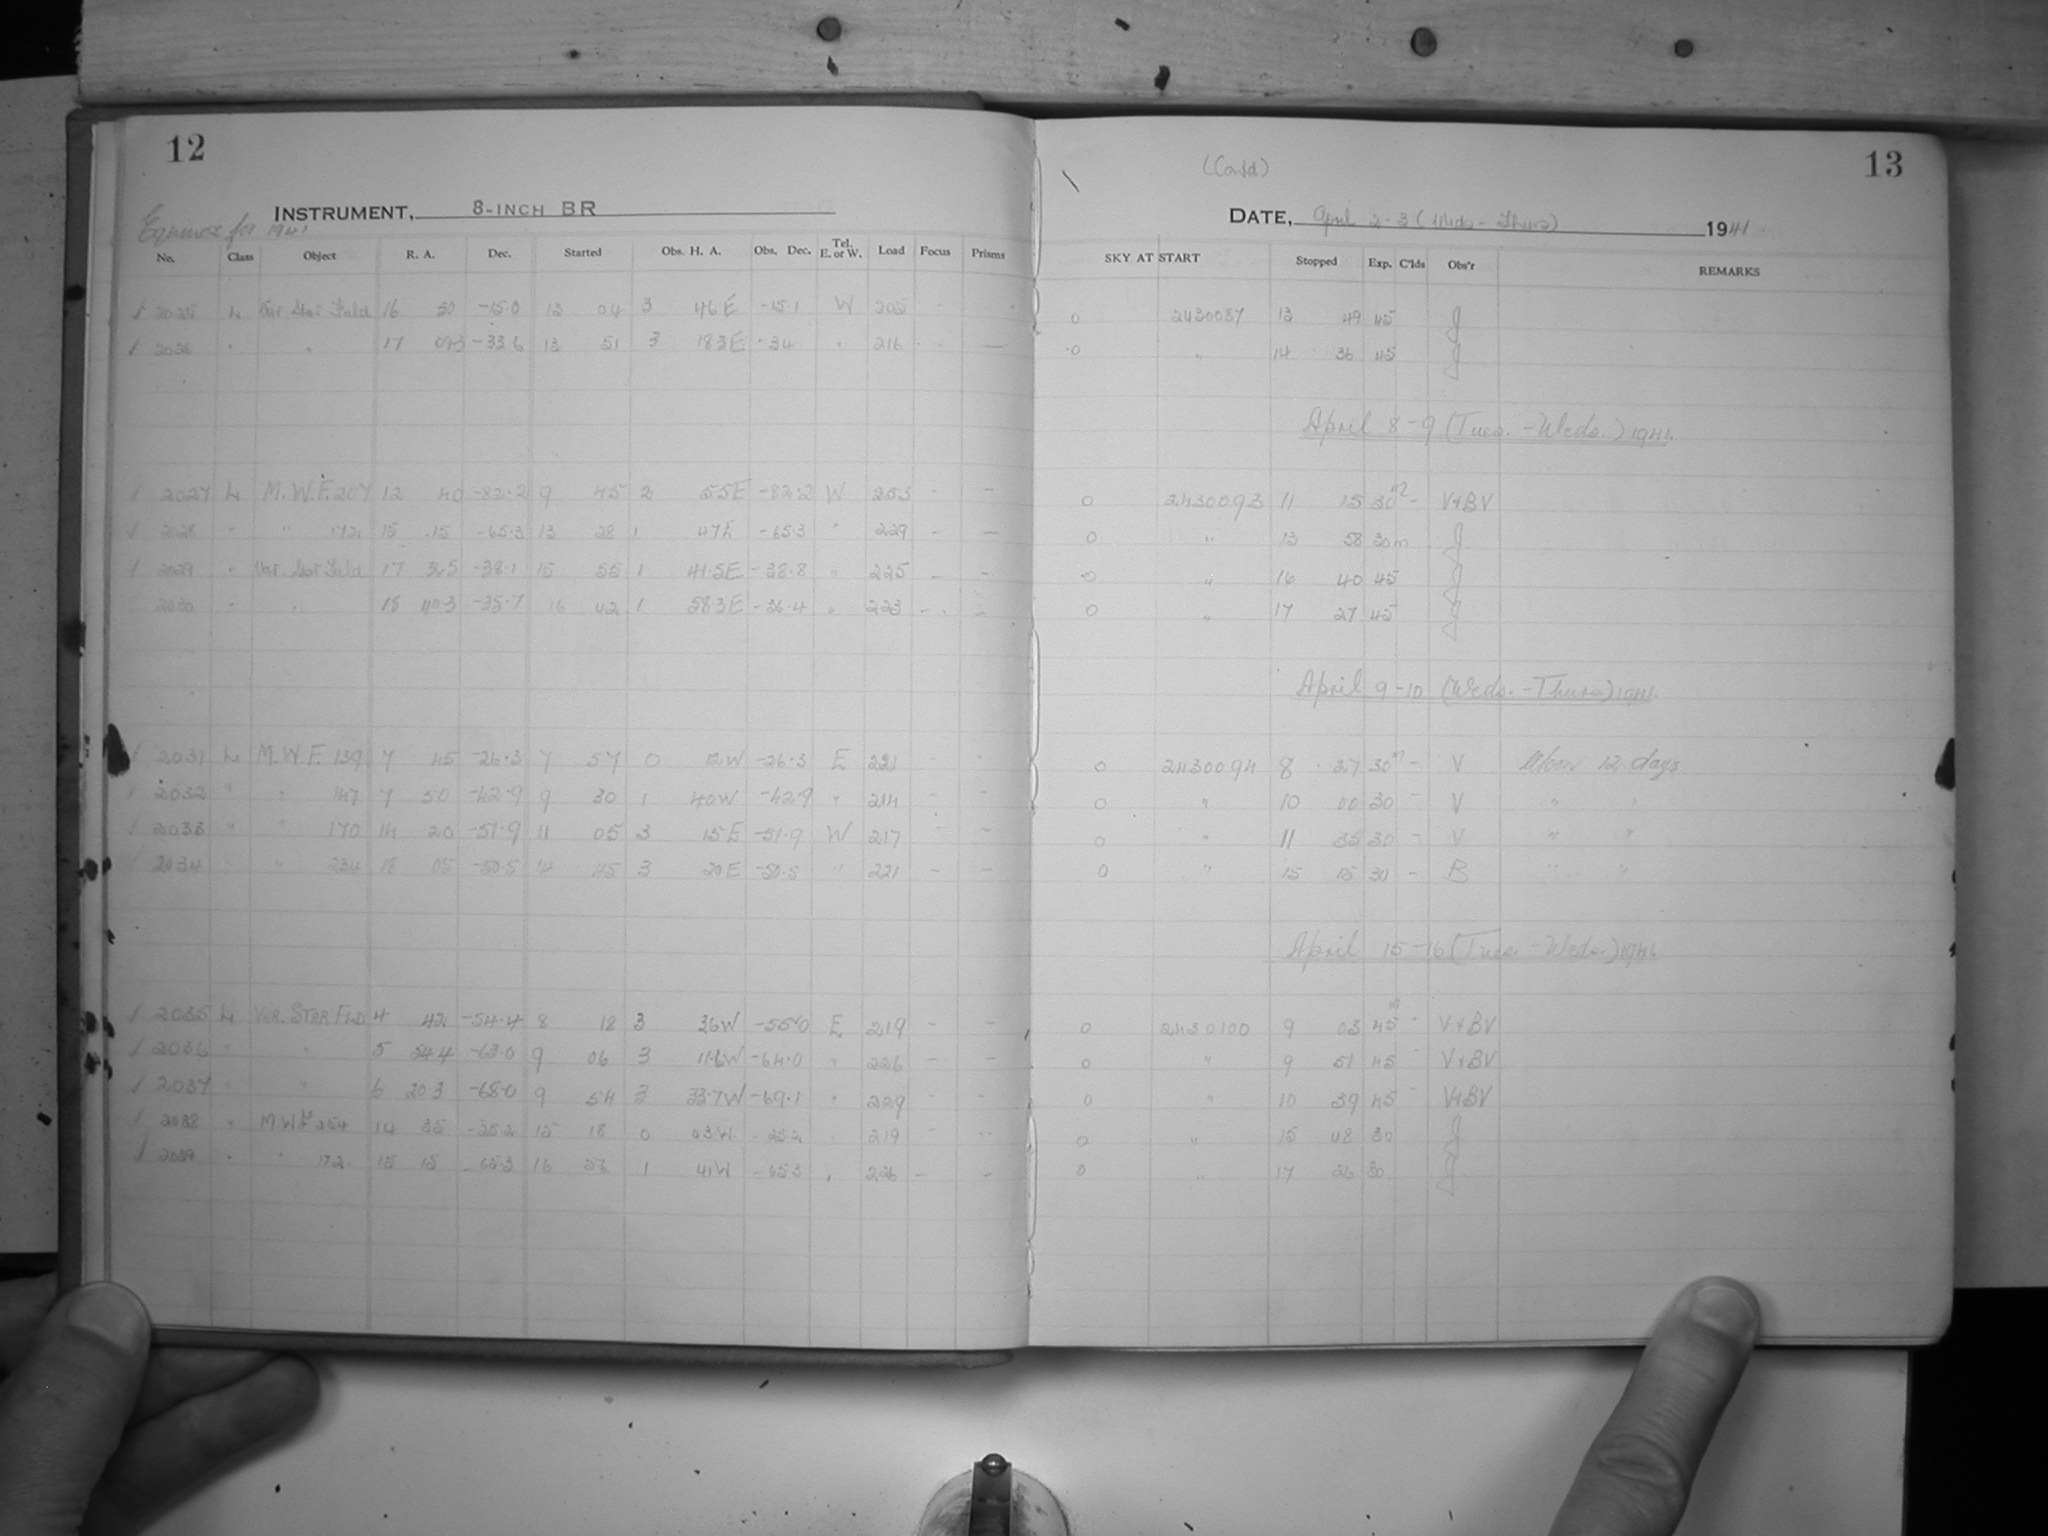 12
INSTRUMENT, 8-INCH BR
Equinox for 1941
No. Class Object R. A. Dec. Started Obs. H. A. Obs. Dec. Tel. E. or W. Load Focus Prisms
2025 L Var Star Field 16 50 -15.0 13 04 3 46E -15.1 W 205 -
2026 " " 17 09.3 -33.6 13 51 3 18.3E -34 " 216 - —
2027 L M.W.F. 207 12 40 -82.2 9 45 2 55E -82.2 W 253 - -
2028 " " 172 15 15 -65.3 13 28 1 47E -65.3 " 229 - —
2029 " Var. Star Field 17 -38.1 15 55 1 41.5E -38.8 " 225 - -
2030 " " 18 40.3 -35.7 16 42 1 58.3E -36.4 " 223 - -
2031 L M.W.F. 139 7 45 -26.3 7 57 0 12W -26.3 E 221 - -
2032 " " 147 7 50 -42.9 9 30 1 40W -42.9 " 214 - -
2033 " " 170 14 20 -51.9 11 05 3 15E -51.9 W 217 - -
2034 " " 234 18 05 -50.5 14 45 3 20E -50.5 " 221 - -
2035 L VAR. STAR FLD 4 42 -54.4 8 18 3 36W -55.0 E 219 - -
2036 " " 5 54.4 -63.0 9 06 3 11.6W -64.0 " 226 - -
2037 " " 6 20.3 -68.0 9 54 3 33.7W -69.1 " 229 - -
2038 " M.W.F 254 14 35 -25.2 15 18 0 03W -25.2 " 219 - -
2039 " " 172 15 15 -65.3 16 56 1 41W -65.3 " 226 - -
13
(Contd)
DATE, April 2-3 (Weds - Thurs) 1941
SKY AT START Stopped Exp. C'lds Obs'r REMARKS
0 2430087 13 49 45 J
0 " 14 36 45 J
April 8-9 (Tues. - Weds.) 1941.
0 2430093 11 15 30m - V+BV
0 " 13 58 30m J
0 " 16 40 45 J
0 " 17 27 45 J
April 9-10 (Weds. - Thurs) 1941.
0 2430094 8 27 30m - V Moon 12 days
0 " 10 00 30 - V " "
0 " 11 35 30 - V " "
0 " 15 15 30 - B " "
April 15-16 (Tues. - Weds.) 1941.
0 2430100 9 03 45m - V+BV
0 " 9 51 45 V+BV
0 " 10 39 45 - V+BV
0 " 15 48 30 J
0 " 17 26 30 J